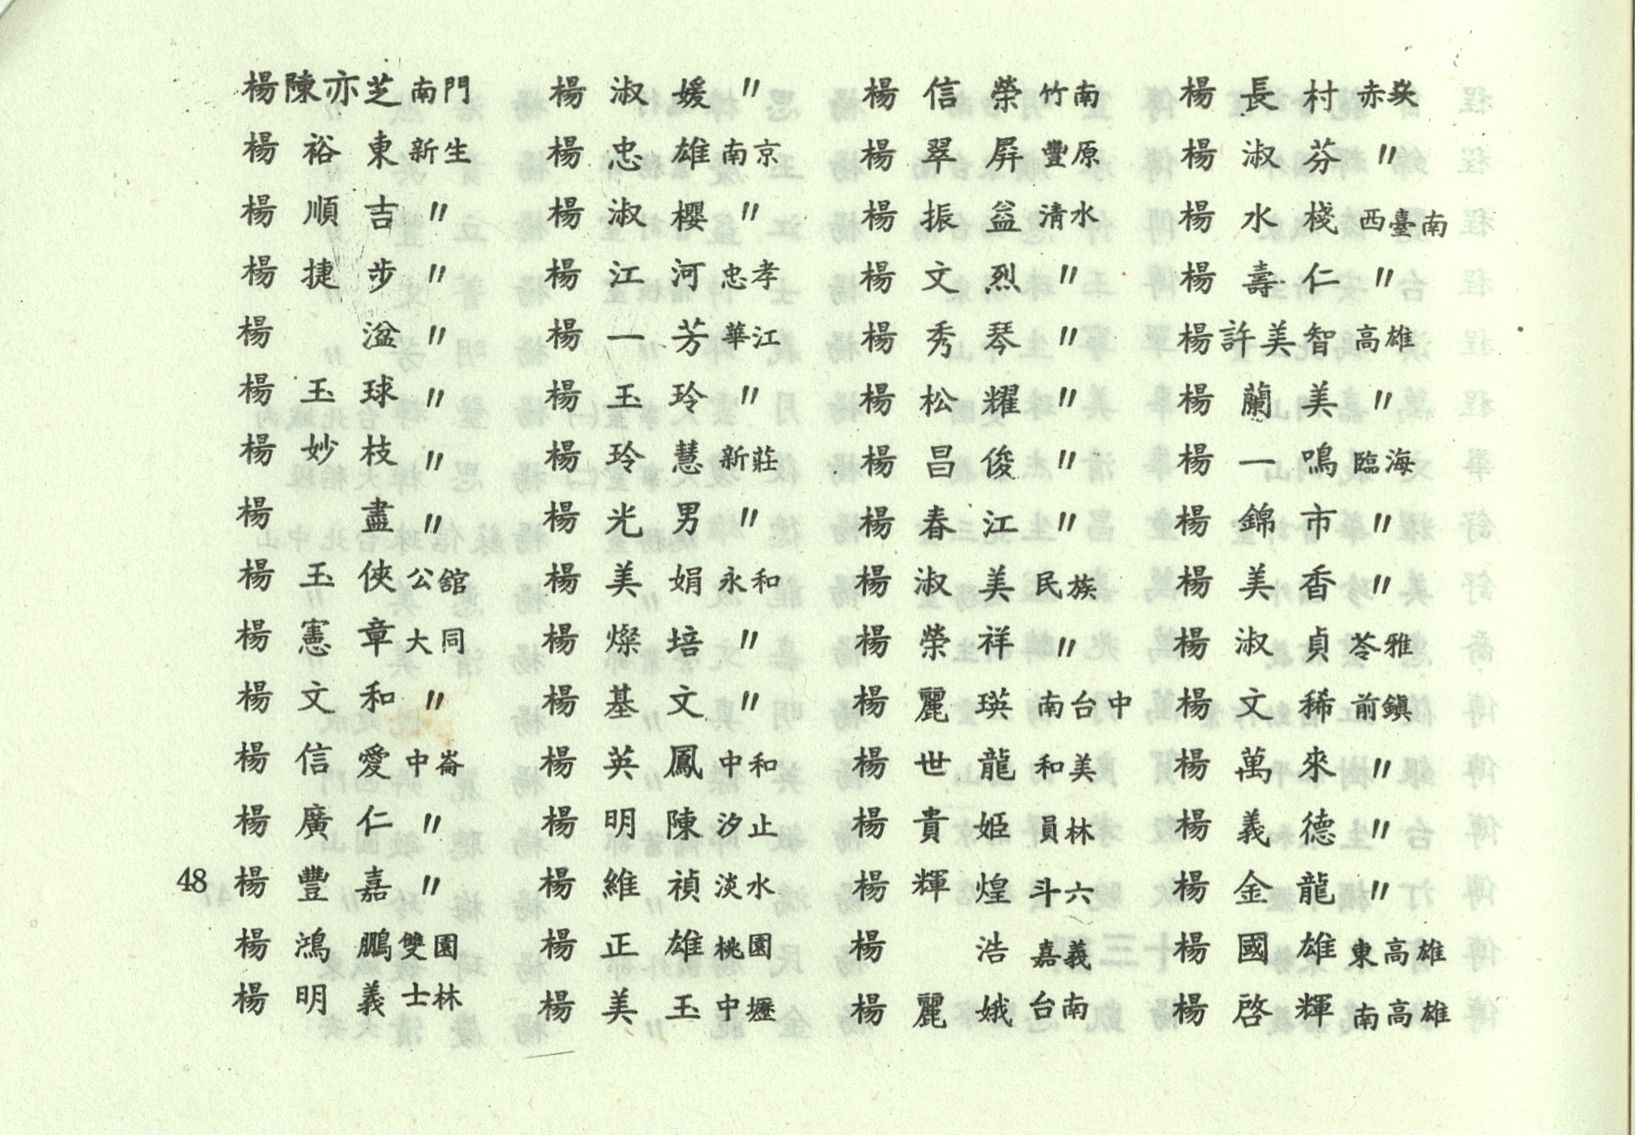 楊陳亦芝 南門
楊裕東 新生
楊順吉 〃
楊捷步 〃
楊湓 〃
楊玉球 〃
楊妙枝 〃
楊盡 〃
楊玉俠 公舘
楊憲章 大同
楊文和 〃
楊信愛 中崙
楊廣仁 〃
楊豐嘉 〃
楊鴻鵬 雙園
楊明義 士林
楊淑媛 〃
楊忠雄 南京
楊淑櫻 〃
楊江河 忠孝
楊一芳 華江
楊玉玲 〃
楊玲慧 新莊
楊光男 〃
楊美娟 永和
楊燦培 〃
楊基文 〃
楊英鳳 中和
楊明陳 汐止
楊維禎 淡水
楊正雄 桃園
楊美玉 中壢
楊信榮 竹南
楊翠屏 豐原
楊振益 清水
楊文烈 〃
楊秀琴 〃
楊松耀 〃
楊昌俊 〃
楊春江 〃
楊淑美 民族
楊榮祥 〃
楊麗瑛 南台中
楊世龍 和美
楊貴姫 員林
楊輝煌 斗六
楊浩 嘉義
楊麗娥 台南
楊長村 赤崁
楊淑芬 〃
楊水棧 西臺南
楊壽仁 〃
楊許美智 高雄
楊蘭美 〃
楊一鳴 臨海
楊錦市 〃
楊美香 〃
楊淑貞 苓雅
楊文稀 前鎭
楊萬來 〃
楊義德 〃
楊金龍 〃
楊國雄 東高雄
楊啓輝 南高雄
48